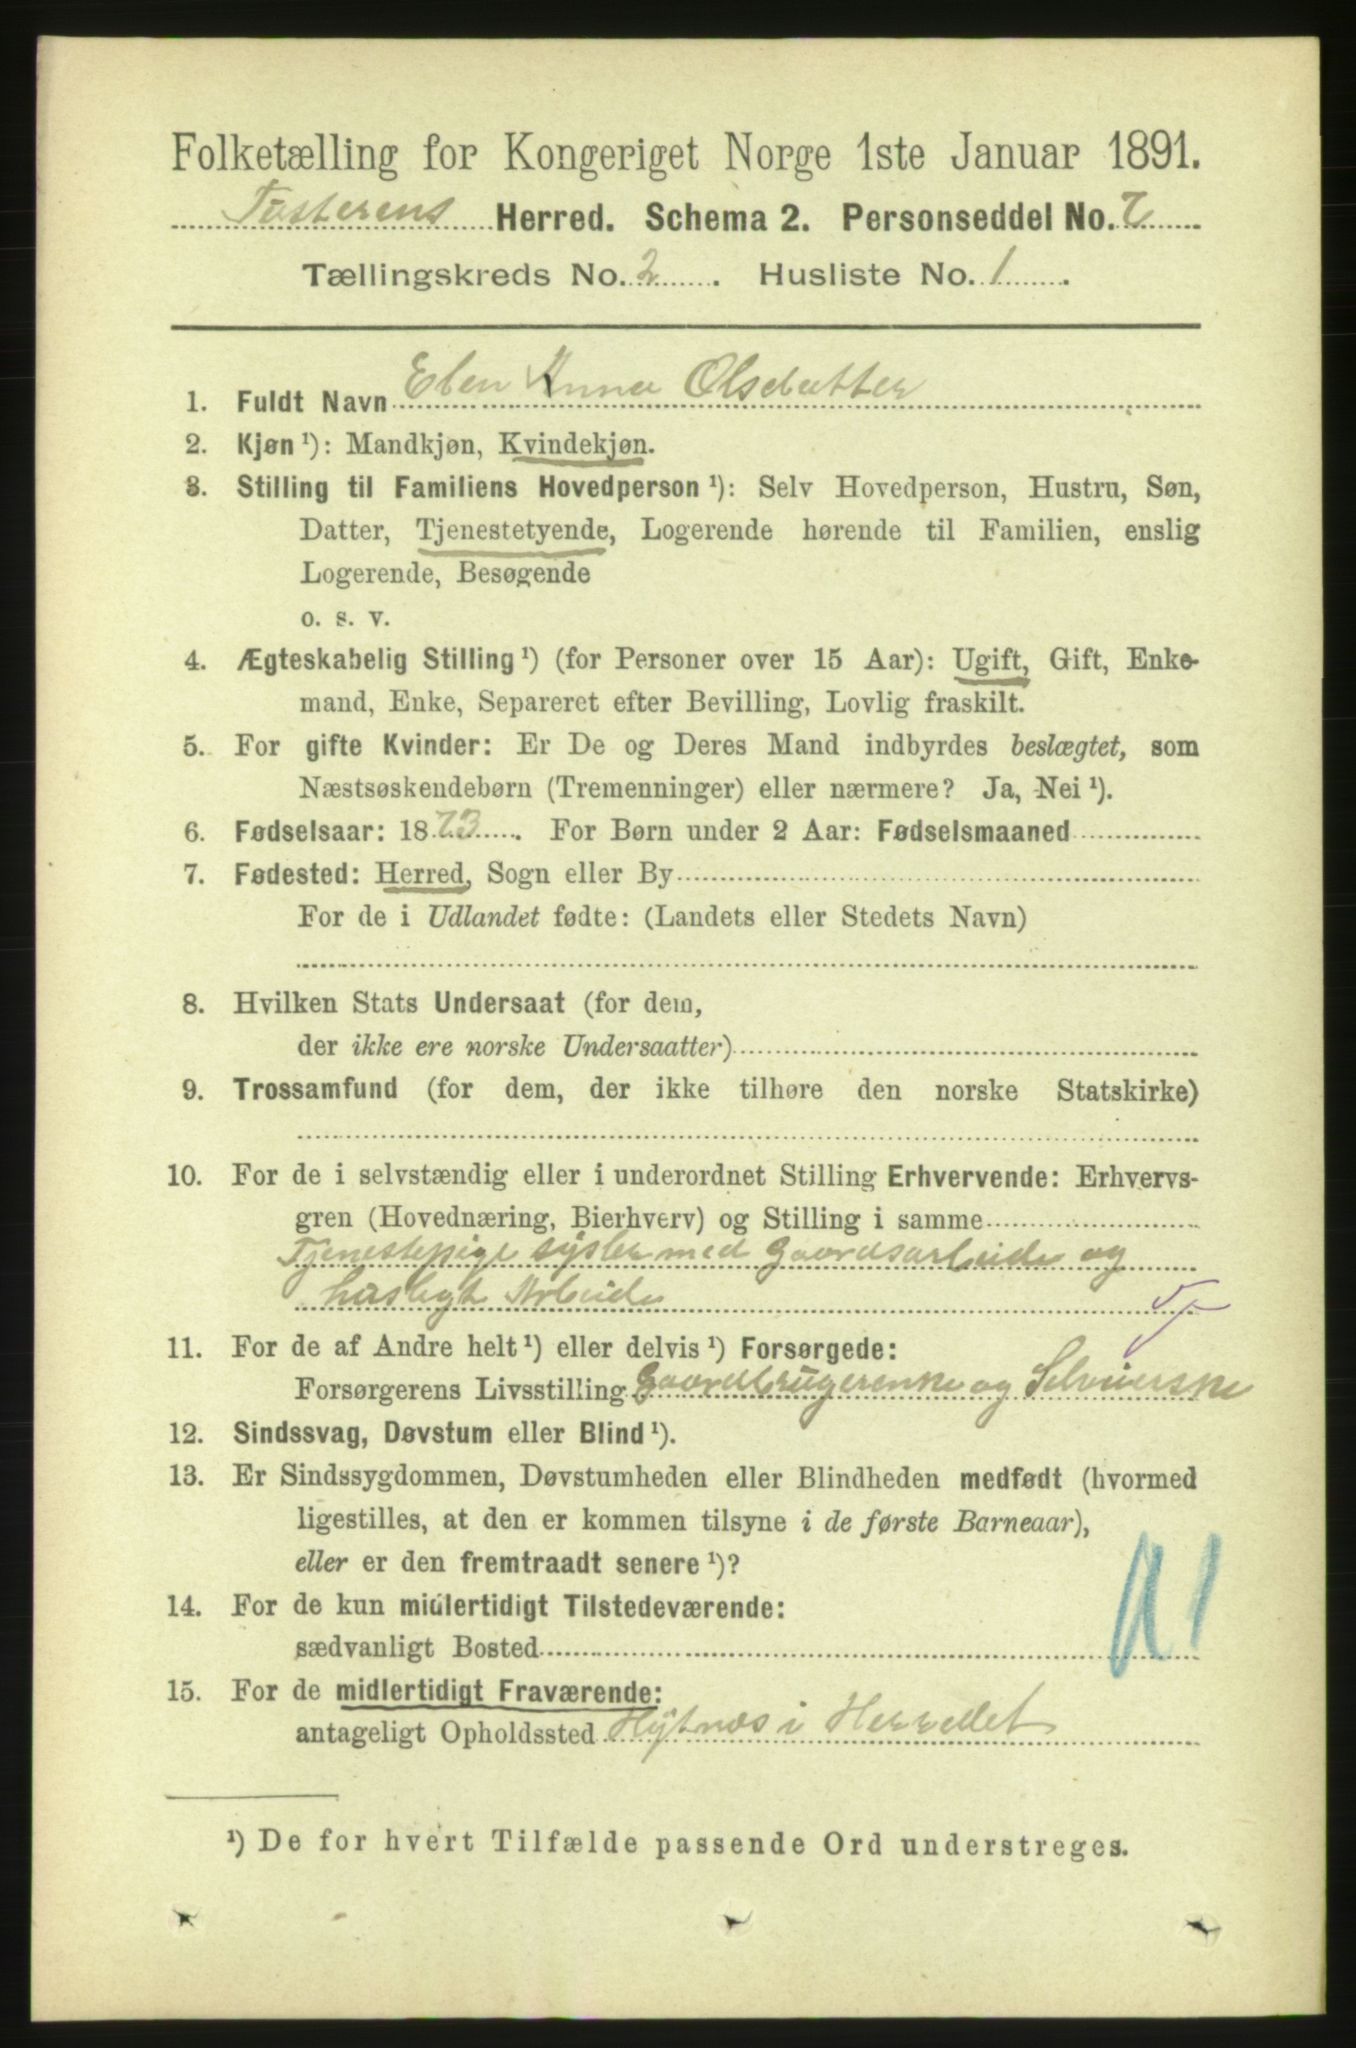 Folketælling for Kongeriget Norge 1ste Januar 1891.
Tusterens Herred. Schema 2. Personseddel No. 7
Tællingskreds No. 2. Husliste No. 1.
1. Fuldt Navn Elen Anna Olsdatter
2. Kjøn ¹): Mandkjøn, Kvindekjøn.
3. Stilling til Familiens Hovedperson ¹): Selv Hovedperson, Hustru, Søn,
Datter, Tjenestetyende, Logerende hørende til Familien, enslig
Logerende, Besøgende
o. s. v.
4. Ægteskabelig Stilling ¹) (for Personer over 15 Aar): Ugift, Gift, Enke-
mand, Enke, Separeret efter Bevilling, Lovlig fraskilt.
5. For gifte Kvinder: Er De og Deres Mand indbyrdes beslægtet, som
Næstsøskendebørn (Tremenninger) eller nærmere? Ja, Nei ¹).
6. Fødselsaar: 1873. For Børn under 2 Aar: Fødselsmaaned
7. Fødested: Herred, Sogn eller By
For de i Udlandet fødte: (Landets eller Stedets Navn)
8. Hvilken Stats Undersaat (for dem,
der ikke ere norske Undersaatter)
9. Trossamfund (for dem, der ikke tilhøre den norske Statskirke)
10. For de i selvstændig eller i underordnet Stilling Erhvervende: Erhvervs-
gren (Hovednæring, Bierhverv) og Stilling i samme
Tjenestepige sysler med Gaardsarbeide og
husligt Arbeide
11. For de af Andre helt ¹) eller delvis ¹) Forsørgede:
Forsørgerens Livsstilling Gaardbrugerenke og Selveierske
12. Sindssvag, Døvstum eller Blind ¹).
13. Er Sindssygdommen, Døvstumheden eller Blindheden medfødt (hvormed
ligestilles, at den er kommen tilsyne i de første Barneaar),
eller er den fremtraadt senere ¹)?
14. For de kun midlertidigt Tilstedeværende:
sædvanligt Bosted
15. For de midlertidigt Fraværende:
antageligt Opholdssted Hytnæs i Herredet
¹) De for hvert Tilfælde passende Ord understreges.